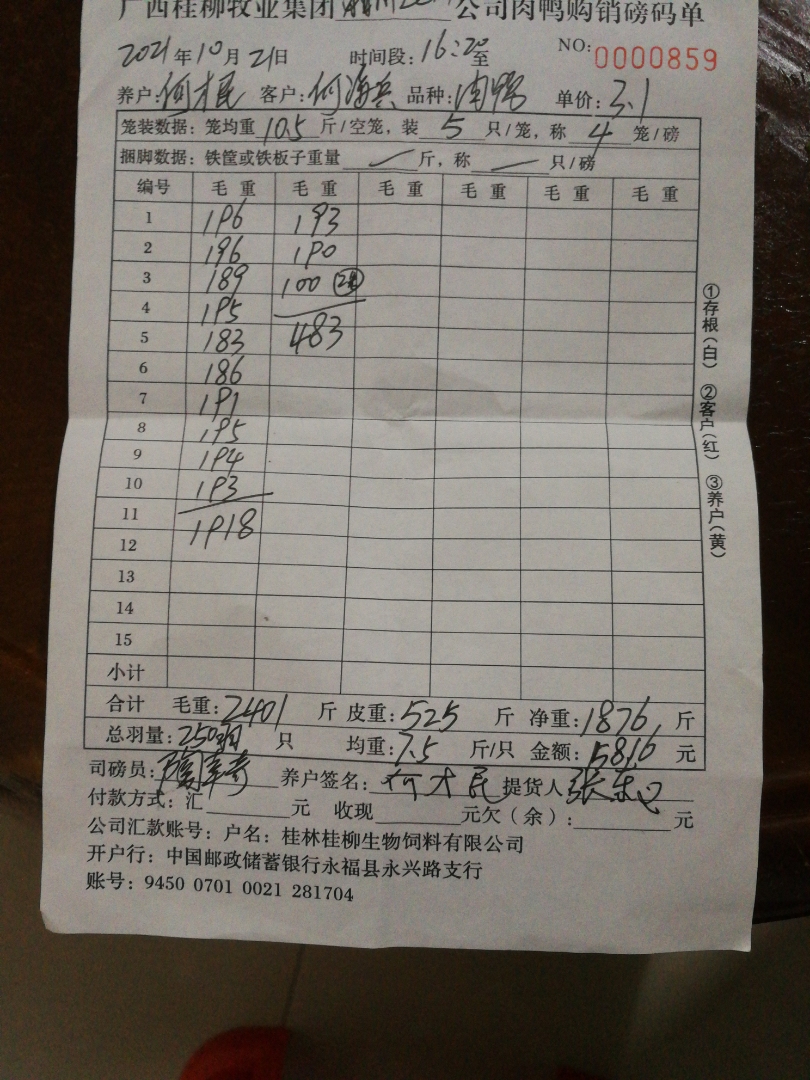 广西桂柳牧业集团 公司肉鸭购销磅码单
2021年10月21日 时间段：16:20至 NO: 0000859
养户：何才民 客户：何海兵 品种： 单价：3.1
笼装数据：笼均重10.5斤/空笼，装5只/笼，称4笼/磅
捆脚数据：铁筐或铁板子重量 斤，称 只/磅
编号 毛重 毛重 毛重 毛重 毛重 毛重
1 196 193
2 196 190
3 189 100
4 195
5 183 483
6 186
7 191
8 195
9 194
10 193
11
12 1918
13
14
15
小计
合计 毛重：2401 斤 皮重：525 斤 净重：1876 斤
总羽量：250 只 均重：7.5 斤/只 金额：5816 元
司磅员： 养户签名：何才民 提货人
付款方式：汇 元 收现 元欠（余）： 元
公司汇款账号：户名：桂林桂柳生物饲料有限公司
开户行：中国邮政储蓄银行永福县永兴路支行
账号：9450 0701 0021 281704
①存根（白） ②客户（红） ③养户（黄）